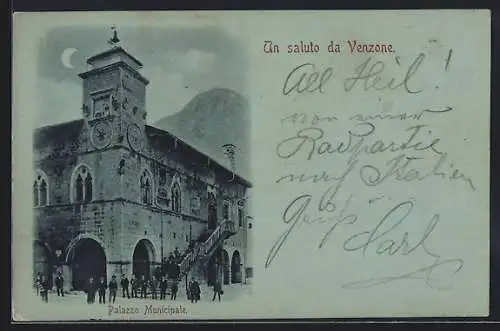 Un saluto da Venzone.
All Heil!
von einer
Radpartie
nach Italien
Gruß
Carl
Palazzo Municipale.